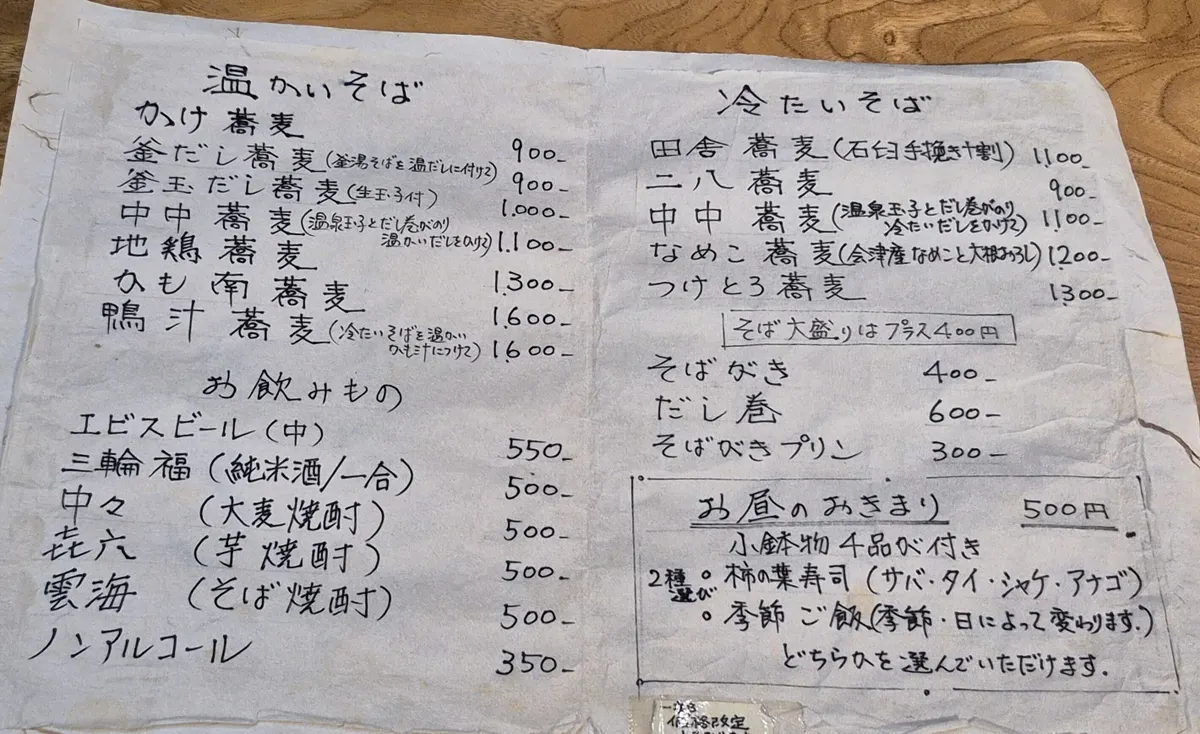 温かいそば
かけ蕎麦 900-
釜だし蕎麦(釜湯そばを温だしに付けて) 900-
釜玉だし蕎麦(生玉子付) 1.000-
中中蕎麦(温泉玉子とだし巻がのり
温かいだしをかけて) 1.100-
地鶏蕎麦 1.300-
かも南蕎麦 1.600-
鴨汁蕎麦(冷たいそばを温かい
かも汁につけて) 1.600-
お飲みもの
エビスビール(中) 550-
三輪福(純米酒/一合) 500-
中々(大麦焼酎) 500-
㐂六(芋焼酎) 500-
雲海(そば焼酎) 500-
ノンアルコール 350-
冷たいそば
田舎蕎麦(石臼手挽き十割) 1.100-
二八蕎麦 900-
中中蕎麦(温泉玉子とだし巻がのり
冷たいだしをかけて) 1.100-
なめこ蕎麦(会津産なめこと大根おろし) 1.200-
つけとろ蕎麦 1.300-
そば大盛りはプラス400円
そばがき 400-
だし巻 600-
そばがきプリン 300-
お昼のおきまり 500円
小鉢物4品が付き
2種選び
○柿の葉寿司(サバ・タイ・シャケ・アナゴ)
○季節ご飯(季節・日によって変わります.)
どちらかを選んでいただけます.
価格改定